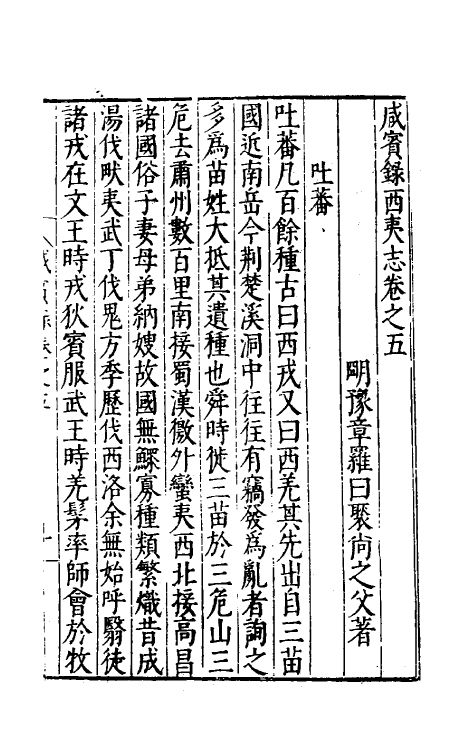 咸賓錄西夷志卷之五
明豫章羅曰褧尚之父著
吐蕃
吐蕃凡百餘種古曰西戎又曰西羌其先出自三苗
國近南岳今荆楚溪洞中往往有竊發爲亂者詢之
多爲苗姓大抵其遺種也舜時徙三苗於三危山三
危去肅州數百里南接蜀漢徼外蠻夷西北接高昌
諸國俗子妻母弟納嫂故國無鰥寡種類繁熾昔成
湯伐畎夷武丁伐鬼方季歷伐西洛余無始呼翳徒
諸戎在文王時戎狄賓服武王時羌髳率師會於牧